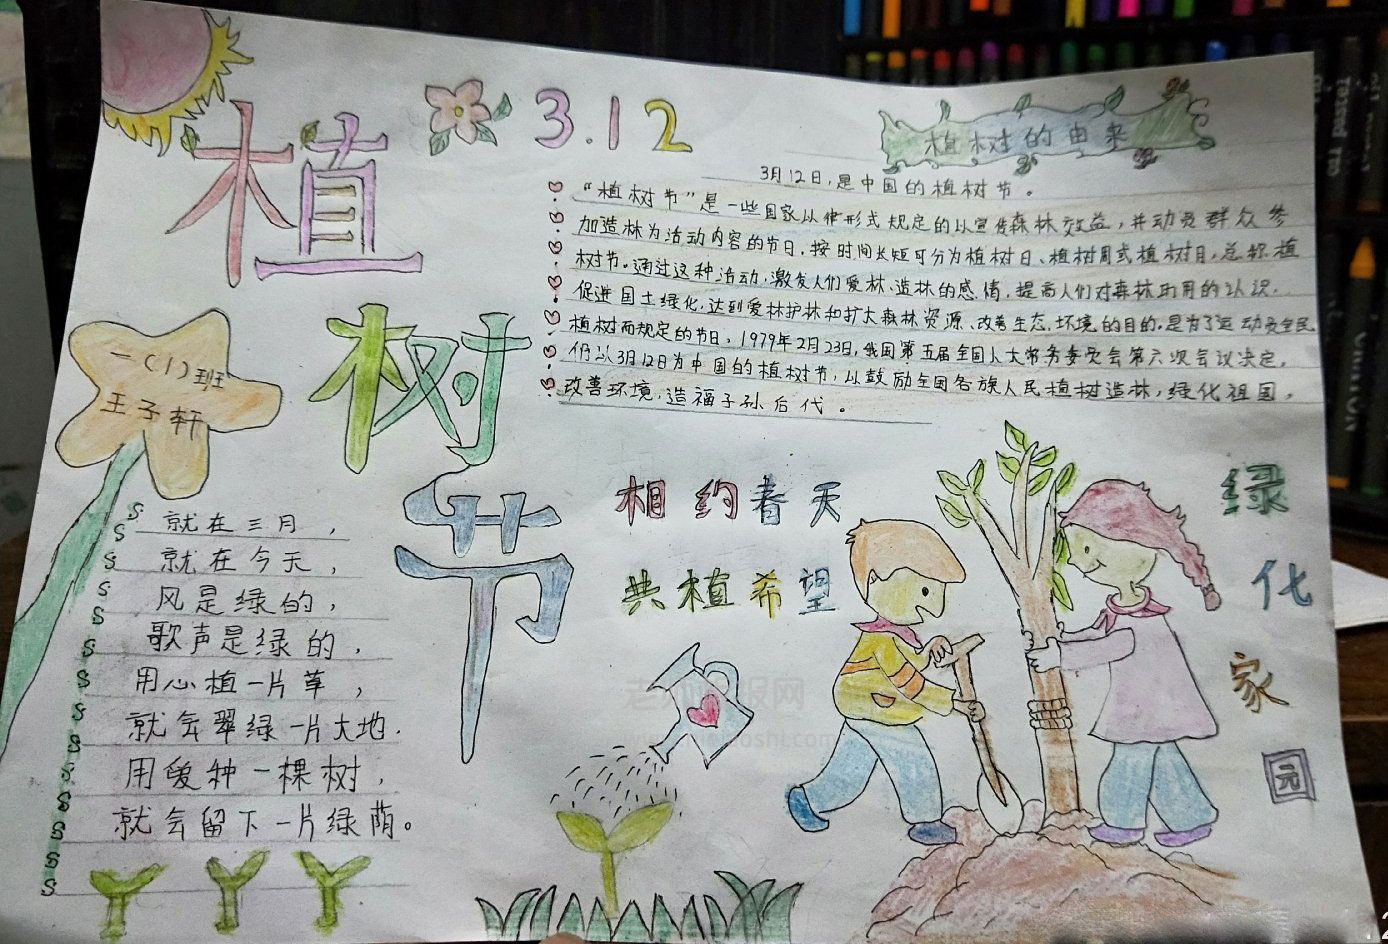 植树节
3.12
植树的由来
3月12日,是中国的植树节。
“植树节”是一些国家以律形式规定的以宣传森林效益,并动员群众参
加造林为活动内容的节日.按时间长短可分为植树日、植树周或植树月,总称植
树节。通过这种活动,激发人们爱林、造林的感情,提高人们对森林功用的认识.
促进国土绿化,达到爱林护林和扩大森林资源、改善生态.环境的目的.是为了运动员全民
植树而规定的节日。1979年2月23日,我国第五届全国人大常务委员会第六次会议决定,
仍以3月12日为中国的植树节,以鼓励全国各族人民植树造林,绿化祖国,
改善环境,造福子孙后代。
一(1)班
王子轩
就在三月,
就在今天,
风是绿的,
歌声是绿的,
用心植一片草,
就会翠绿一片大地.
用爱种一棵树,
就会留下一片绿荫。
相约春天
共植希望
绿化家园